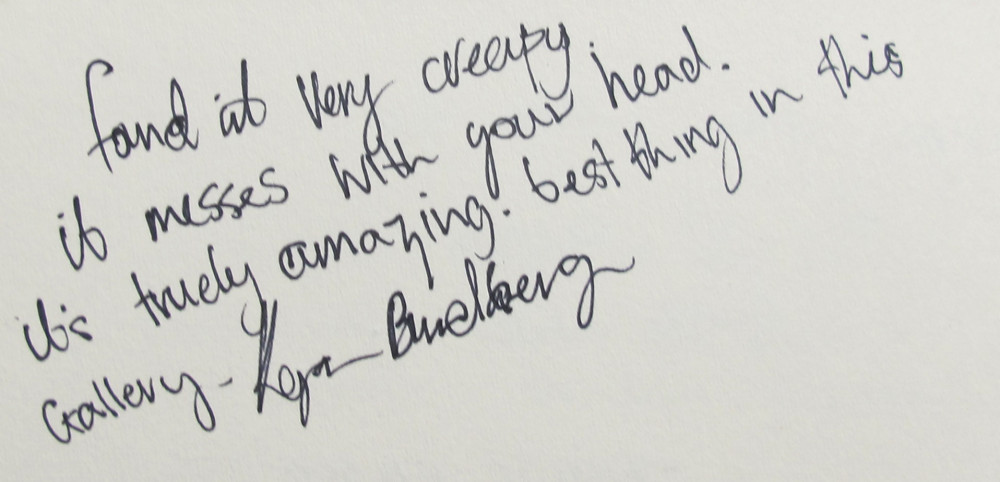 fond it very creepy
it messes with your head.
it's truely amazing. best thing in this
Gallery -